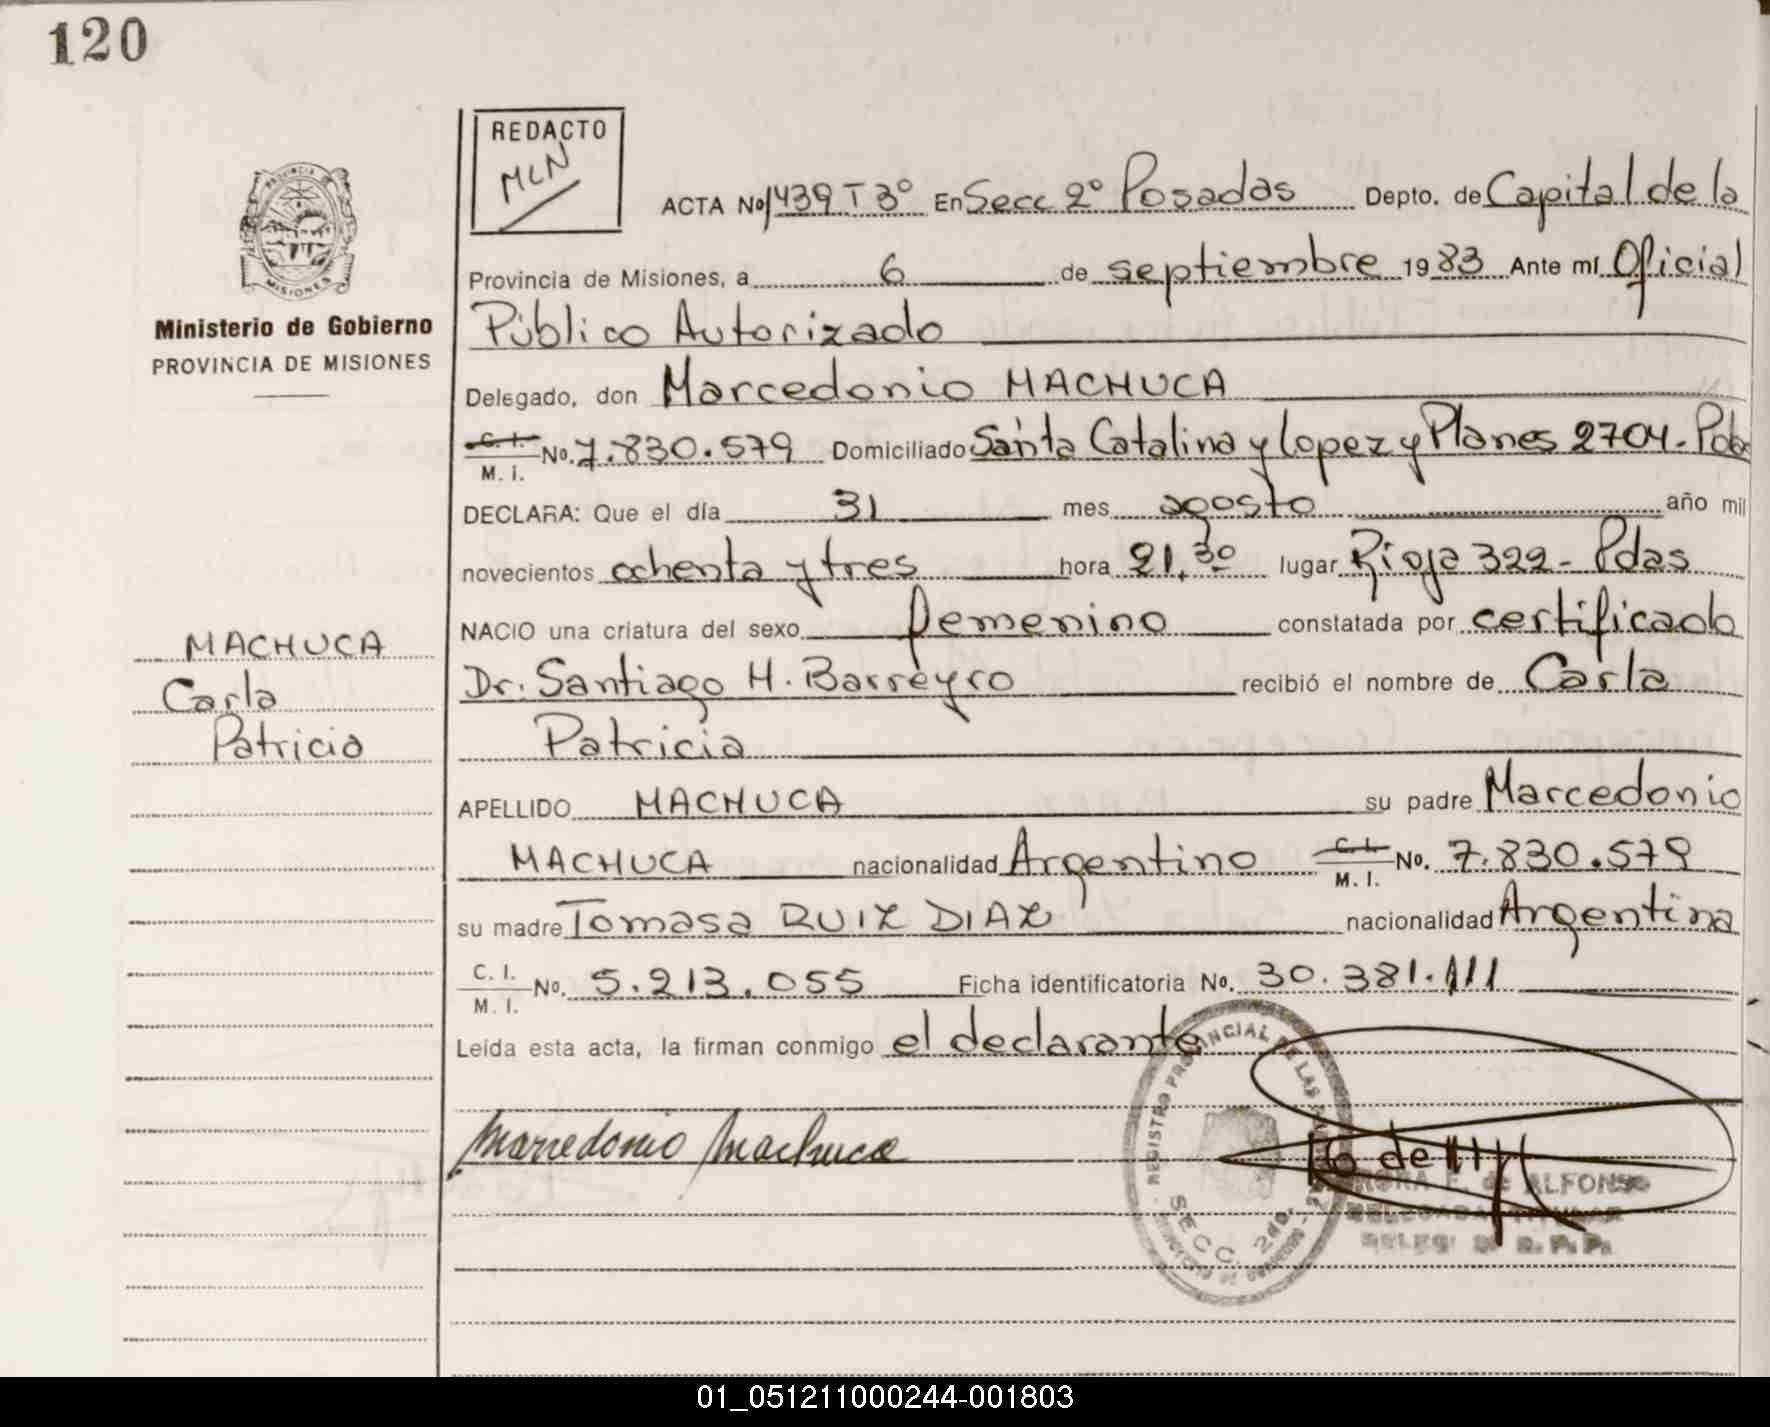 120
REDACTO
MLN
ACTA Nº 1439 T 3º En Secc 2º Posadas Depto. de Capital de la
Provincia de Misiones, a 6 de septiembre 1983 Ante mí Oficial
Público Autorizado
Delegado, don Marcedonio MACHUCA
C. I. M. I. Nº. 7.830.579 Domiciliado Santa Catalina y Lopez y Planes 2704-
DECLARA: Que el día 31 mes agosto año mil
novecientos ochenta y tres hora 21.30 lugar Rioja 322 - Pdas
NACIO una criatura del sexo femenino constatada por certificado
Dr. Santiago H. Barreyro recibió el nombre de Carla
Patricia
APELLIDO MACHUCA su padre Marcedonio
MACHUCA nacionalidad Argentino C. I. M. I. Nº. 7.830.579
su madre Tomasa RUIZ DIAZ nacionalidad Argentina
C. I. M. I. Nº. 5.213.055 Ficha identificatoria Nº. 30.381.111
Leída esta acta, la firman conmigo el declarante
Marcedonio Machuca
REGISTRO PROVINCIAL DE LAS
SECC. 2da.
F. de ALFONSO
DELEGADA TITULAR
MISIONES
Ministerio de Gobierno
PROVINCIA DE MISIONES
MACHUCA
Carla
Patricia
01_051211000244-001803